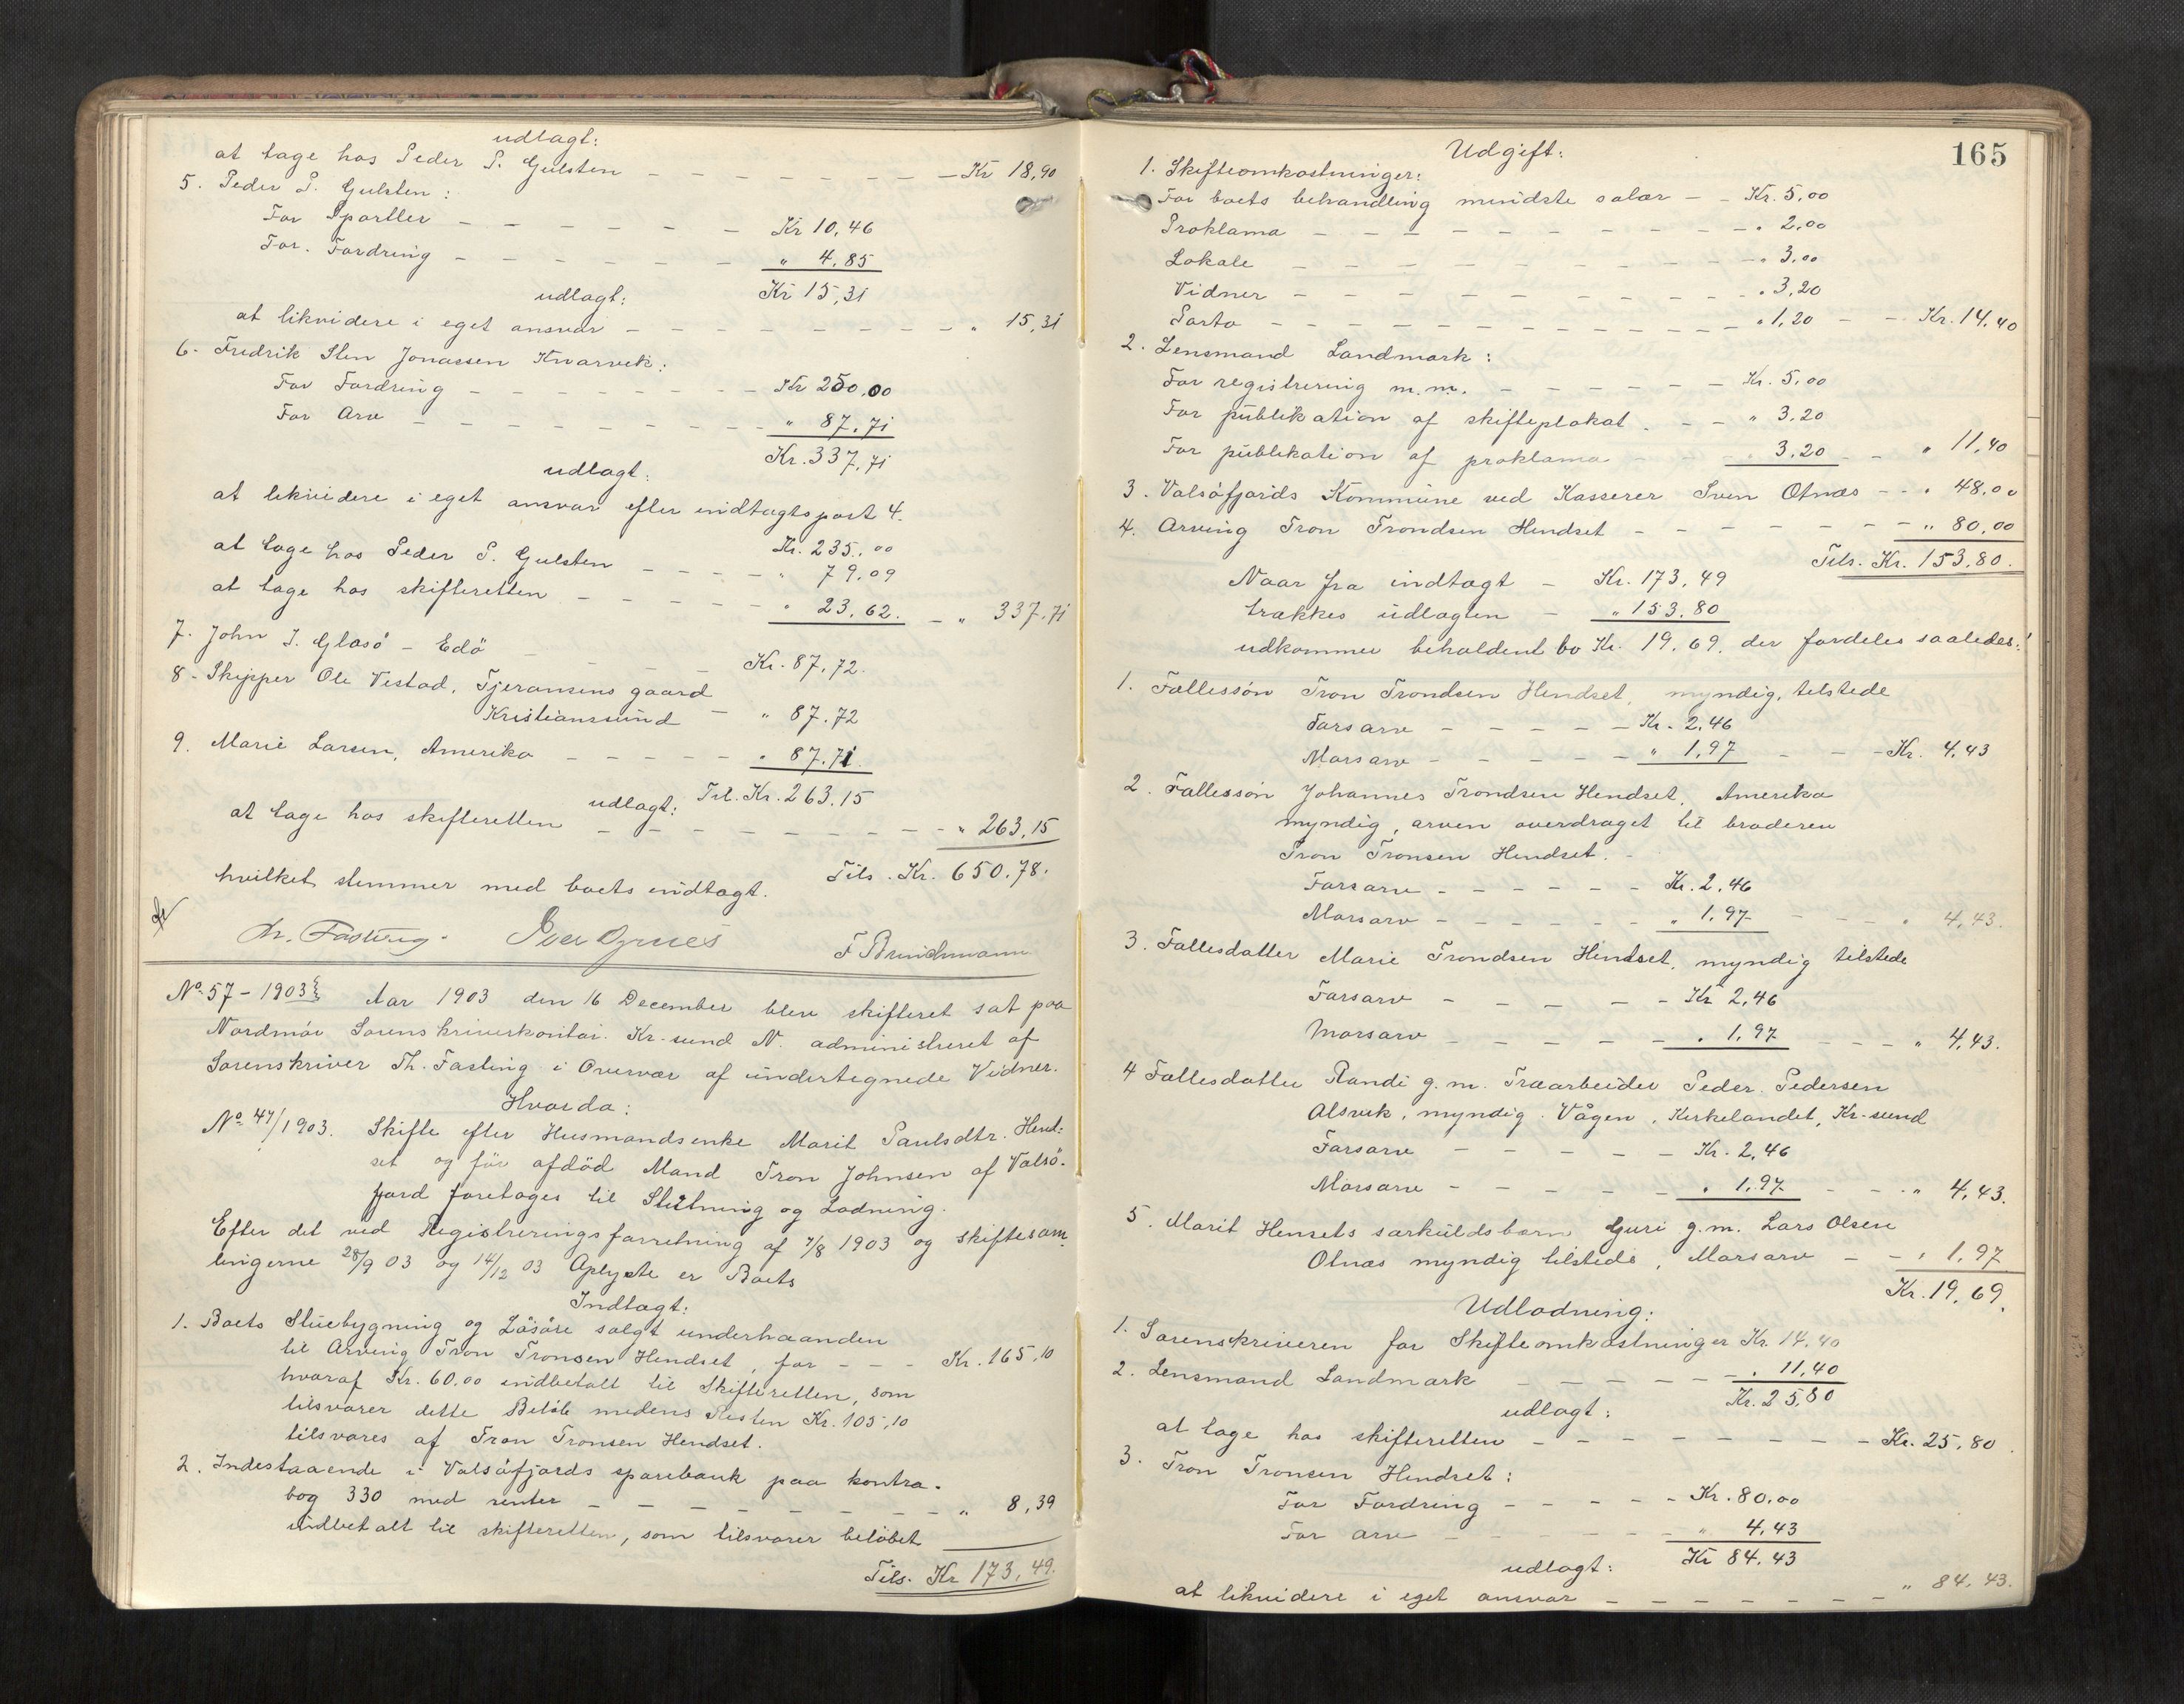 udlagt:
at tage hos Peder P. Gulsten — — — — — — — Kr 18,90
5. Peder P. Gulsten:
For Sportler — — — — — — Kr 10,46
For. Fordring — — — — — — " 4,85
udlagt: Kr 15,31
at likvidere i eget ansvar — — — — — — — — " 15,31
6. Fredrik Sten Jonassen Kvarvik:
For Fordring — — — — — — Kr 250,00
For Arv — — — — — — — — " 87,71
udlagt: Kr. 337,71
at likvidere i eget ansvar efter indtægtspost 4.
Kr. 235,00
at tage hos Peder P. Gulsten — — — — " 79,09
at tage hos skifteretten — — — — — " 23,62. — " 337,71
7. John J. Glasö – Edö — — — — Kr. 87,72.
8. Skipper Ole Vestad, Tjeransens gaard
Kristiansund — " 87,72
9. Marie Larsen, Amerika — — — — — " 87,71.
udlagt: Til. Kr. 263,15
at tage hos skifteretten — — — — — — — — " 263,15
Tils. Kr. 650,78.
hvilket stemmer med boets indtægt.
Th. Fasting. Iver Øgnes F Brinchmann
No. 57 – 1903 Aar 1903 den 16 December blev skifteret sat paa
Nordmör Sorenskriverkontor. Kr-sund N. administreret af
Sorenskriver Th. Fasting i Overvær af undertegnede Vidner.
Hvorda:
No. 47/1903. Skifte efter Husmandsenke Marit Paulsdtr. Hend:
set og för afdöd Mand Tron Johnsen af Valsö-
fjord foretages til Slutning og Lodning.
Efter det ved Registreringsforretning af 7/8 1903 og skiftesam-
lingerne 28/9 03 og 14/12 03 Oplyste er Boets
Indtægt:
1. Boets Stuebygning og Lösöre solgt underhaanden
til Arving Tron Tronsen Hendset, for — — — Kr. 165,10
hvoraf Kr. 60.00 indbetalt til Skifteretten, som
tilsvarer dette Belöb medens Resten Kr. 105,10
tilsvares af Tron Tronsen Hendset.
2. Indestaaende i Valsöfjords sparebank paa kontra-
bog 330 med renter — — — — — — — — " 8,39
indbetalt til skifteretten, som tilsvarer belöbet
Tils. Kr 173,49.
165
Udgift:
1. Skifteomkostninger:
For boets behandling mindste salær — — Kr. 5,00
Proklama — — — — — — — — — — " 2,00
Lokale — — — — — — — — — — " 3,00
Vidner — — — — — — — — — — " 3,20
Porto — — — — — — — — — — — " 1,20 — — Kr. 14,40
2. Lensmand Landmark:
For registrering m.m. — — — — — — Kr. 5,00
For publikation af skifteplakat. — — " 3,20
For publikation af proklama — — — " 3,20 — — " 11,40
3. Valsöfjords Kommune ved Kasserer Sven Otnæs — — " 48,00
4. Arving Tron Trondsen Hendset — — — — — — — " 80,00
Tils. Kr. 153,80.
Naar fra indtægt — Kr. 173,49
trækkes udlæggen — " 153,80
udkommer beholdent bo Kr. 19,69, der fordeles saaledes:
1. Fællessön Tron Trondsen Hendset, myndig, tilstede
Farsarv — — — — — Kr. 2,46
Morsarv — — — — — " 1,97 — — — Kr. 4,43
2. Fællessön Johannes Trondsen Hendset, Amerika
myndig, arven overdraget til broderen
Tron Tronsen Hendset. —
Farsarv — — — — — — Kr. 2,46
Morsarv — — — — — — " 1,97 — — — — " 4,43.
3. Fællesdatter Marie Trondsen Hendset, myndig tilstede
Farsarv — — — — — — Kr 2,46
Morsarv — — — — — — " 1,97 — — — " 4,43.
4 Fællesdatter Randi g.m. Træarbeider Peder Pedersen
Alsvik, myndig. Vågen, Kirkelandet, Kr-sund
Farsarv — — — — — Kr. 2,46
Morsarv — — — — — " 1,97 — — — " 4,43.
5. Marit Hensets særkuldsbarn Guri g.m. Lars Olsen
Otnæs myndig tilstede, Morsarv — — " 1,97
Kr. 19,69.
Udlodning:
1. Sorenskriveren for Skifteomkostninger Kr. 14,40
2. Lensmand Landmark — — — — — — " 11,40
udlagt: Kr. 25,80
at tage hos skifteretten — — — — — — — — Kr. 25,80.
3. Tron Tronsen Hendset:
For Fordring — — — — — Kr. 80,00
For arv — — — — — — — " 4,43
udlagt: Kr 84,43
at likvidere i eget ansvar — — — — — — — " 84,43.